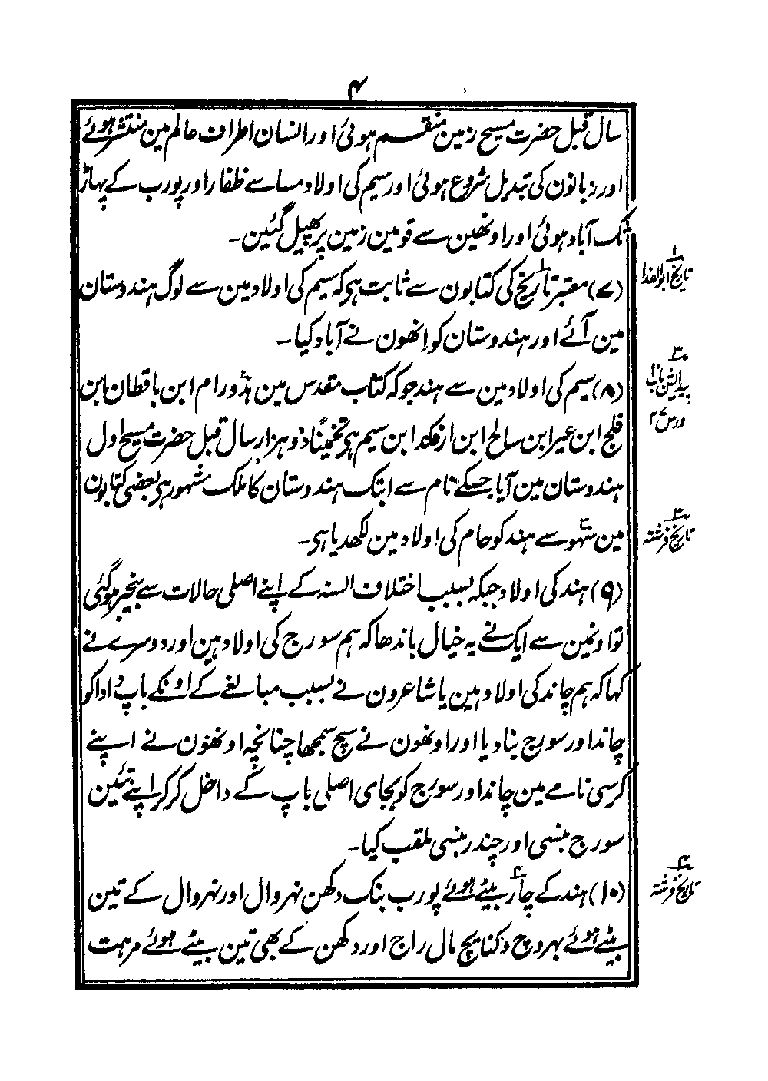 ۴
سال قبل حضرت مسیح زمین منقسم ہوئی اور انسان اطراف عالم مین منتشر ہوئے
اور زبانون کی تبدیل شروع ہوئی اور سیم کی اولاد مسا سے ظفار اور پورب کے پہاڑ
تک آباد ہوئی اور اونھین سے قومین زمین پر پھیل گئین۔
(۷) معتبر تاریخ کی کتابون سے ثابت ہی کہ سیم کی اولاد مین سے لوگ ہندوستان
مین آئے اور ہندوستان کو انھون نے آباد کیا۔
(۸) سیم کی اولاد مین سے ہند جو کہ کتاب مقدس مین ہڈورام ابن باقطان ابن
فلج ابن عیبر ابن سالح ابن ارفکد ابن سیم ہی تخمیناً دو ہزار سال قبل حضرت مسیح اول
ہندوستان مین آیا جسکے نام سے ابتک ہندوستان کا ملک مشہور ہی بعضی کتابون
مین سہو سے ہند کو حام کی اولاد مین لکھدیا ہی۔
(۹) ہند کی اولاد جبکہ بسبب اختلاف السنہ کے اپنے اصلی حالات سے بیخبر ہوگئی
تو اونمین سے ایک نے یہ خیال باندھا کہ ہم سورج کی اولاد ہین اور دوسرے نے
کہا کہ ہم چاند کی اولاد ہین یا شاعرون نے بسبب مبالغے کے اونکے باپ دادا کو
چاند اور سورج بنا دیا اور اونھون نے سچ سمجھا چنانچہ اونھون نے اپنے
کرسی نامے مین چاند اور سورج کو بجای اصلی باپ کے داخل کر کر اپنے تئین
سورج بنسی اور چندر بنسی ملقب کیا۔
(۱۰) ہند کے چار بیٹے ہوئے پورب بنک دکھن نہروال اور نہروال کے تین
بیٹے ہوئے بہروچ کنباچ مال راج اور دکھن کے بھی تین بیٹے ہوئے مرہٹ
۱
تاریخ ابوالفدا
۲
پیدایش باب ۱۰
ورس ۲۷
۳
تاریخ فرشتہ
۴
تاریخ فرشتہ